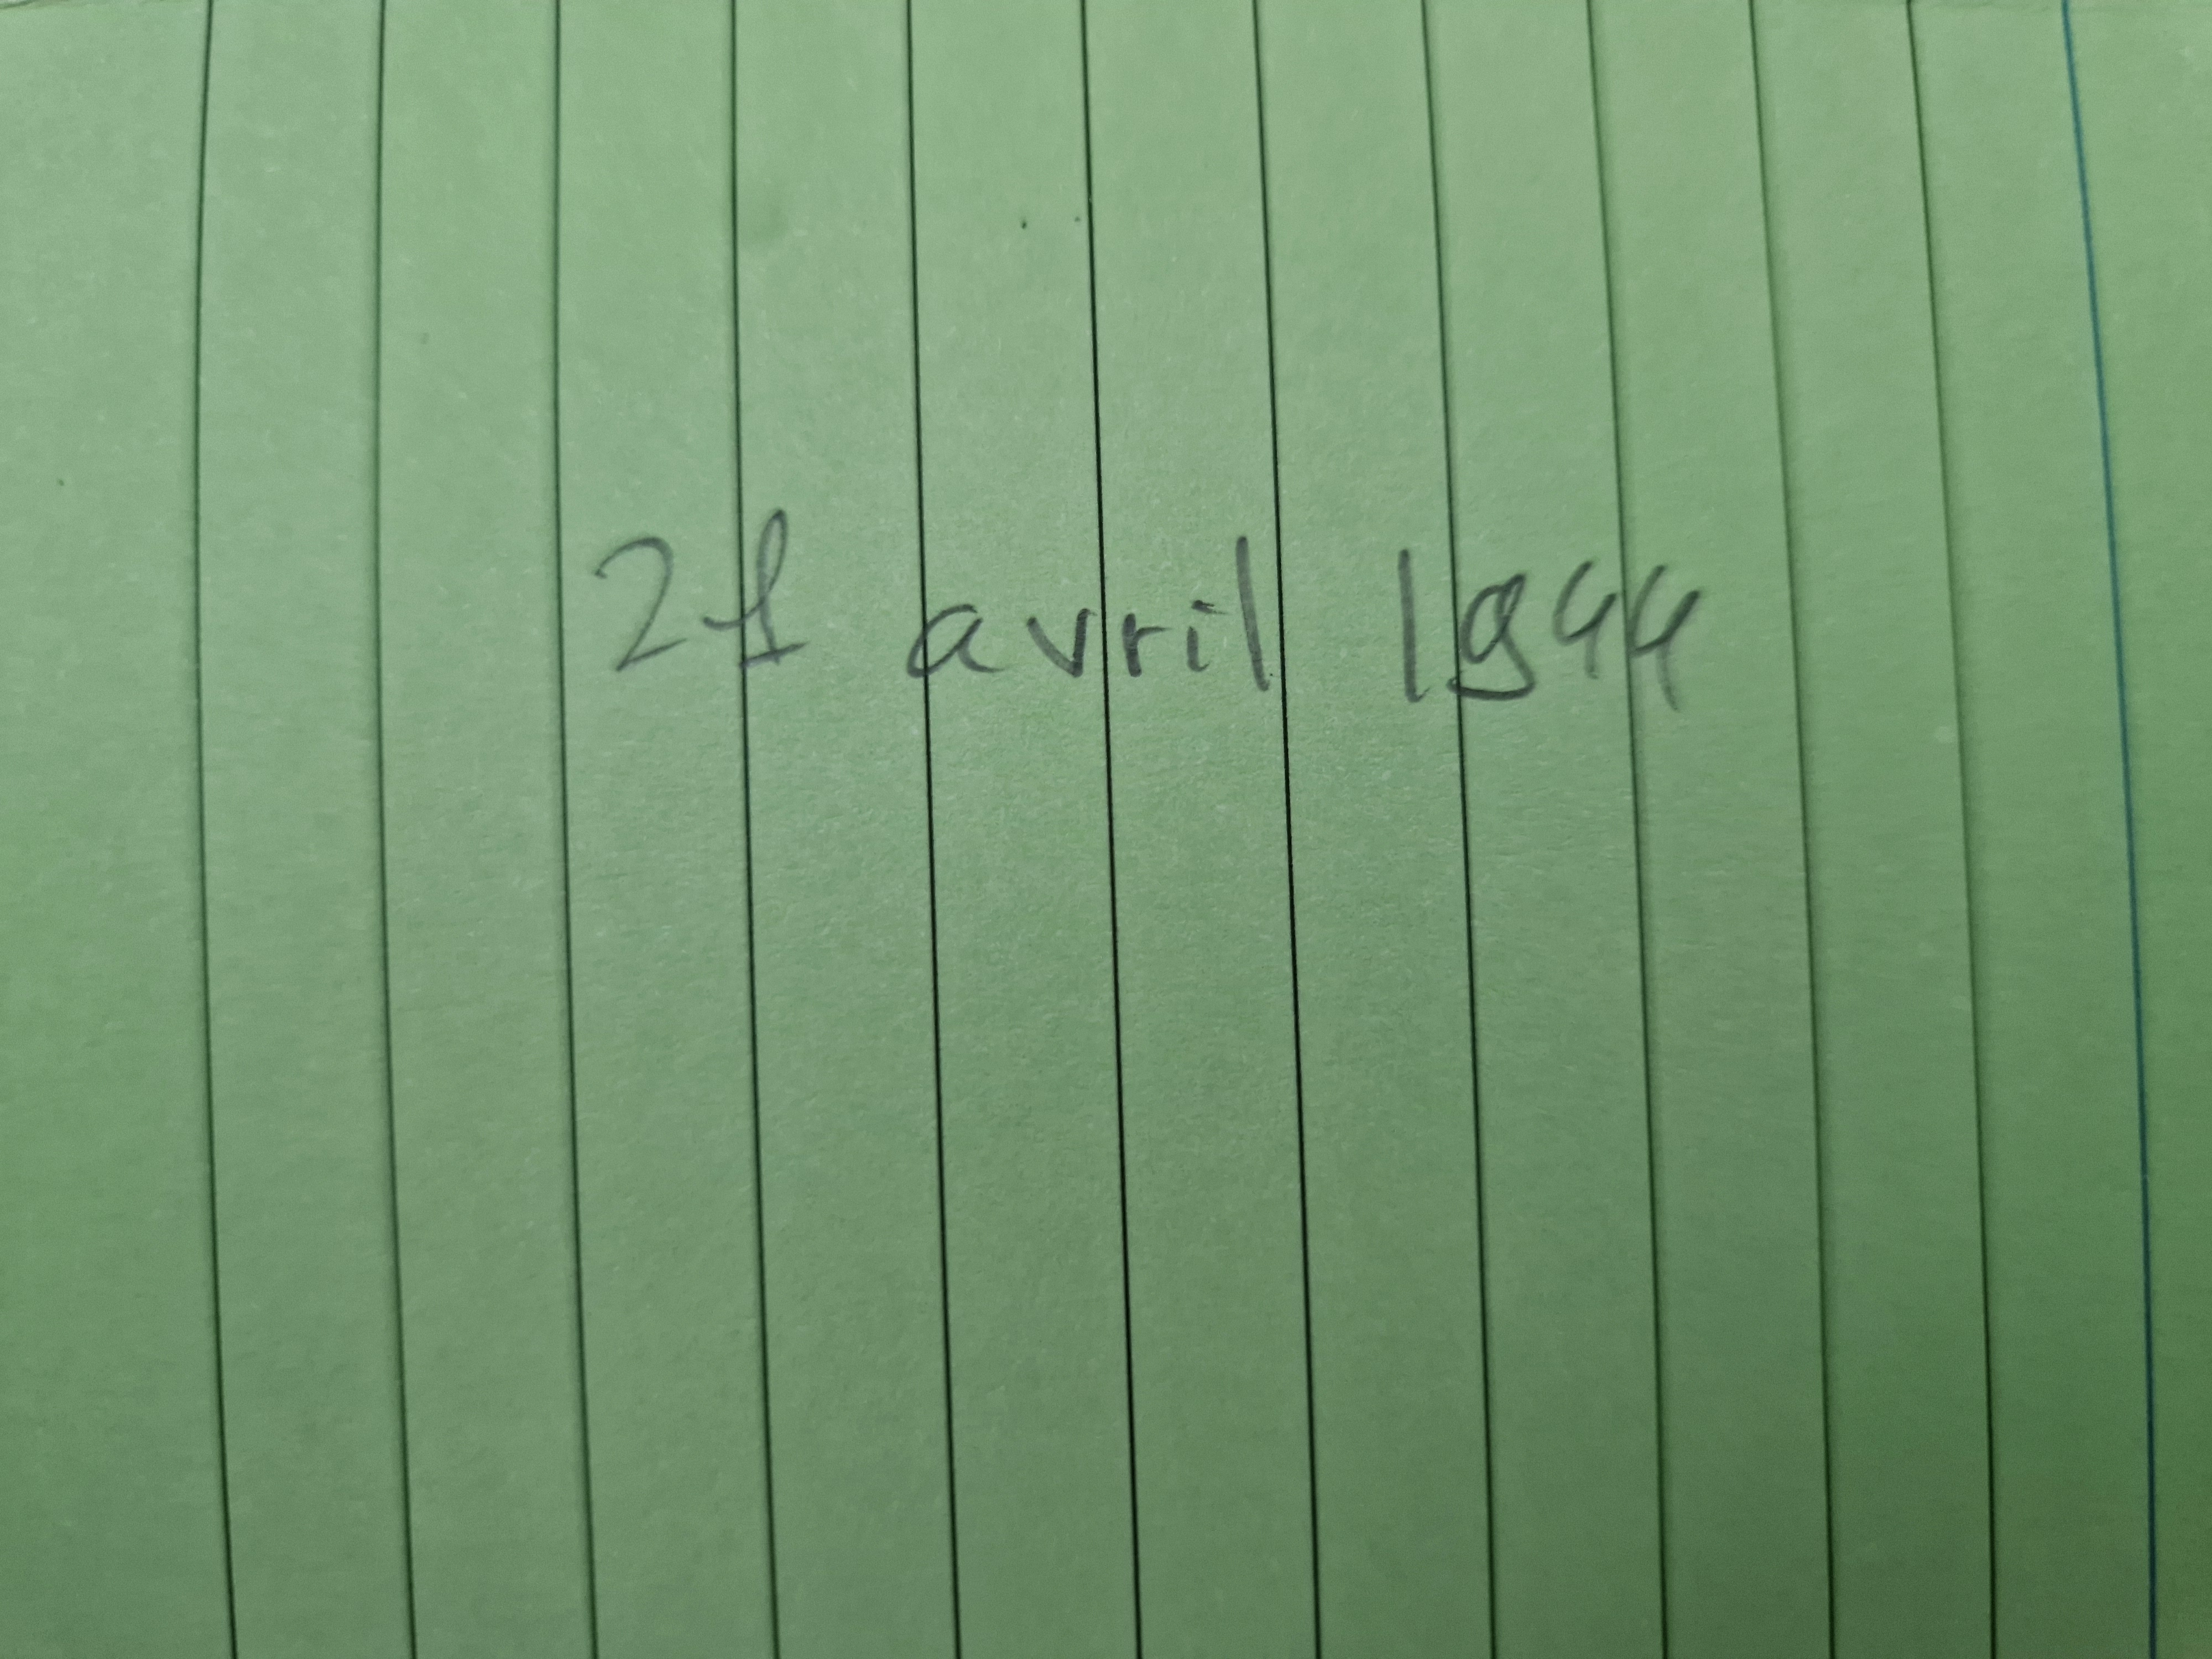 21 avril 1944